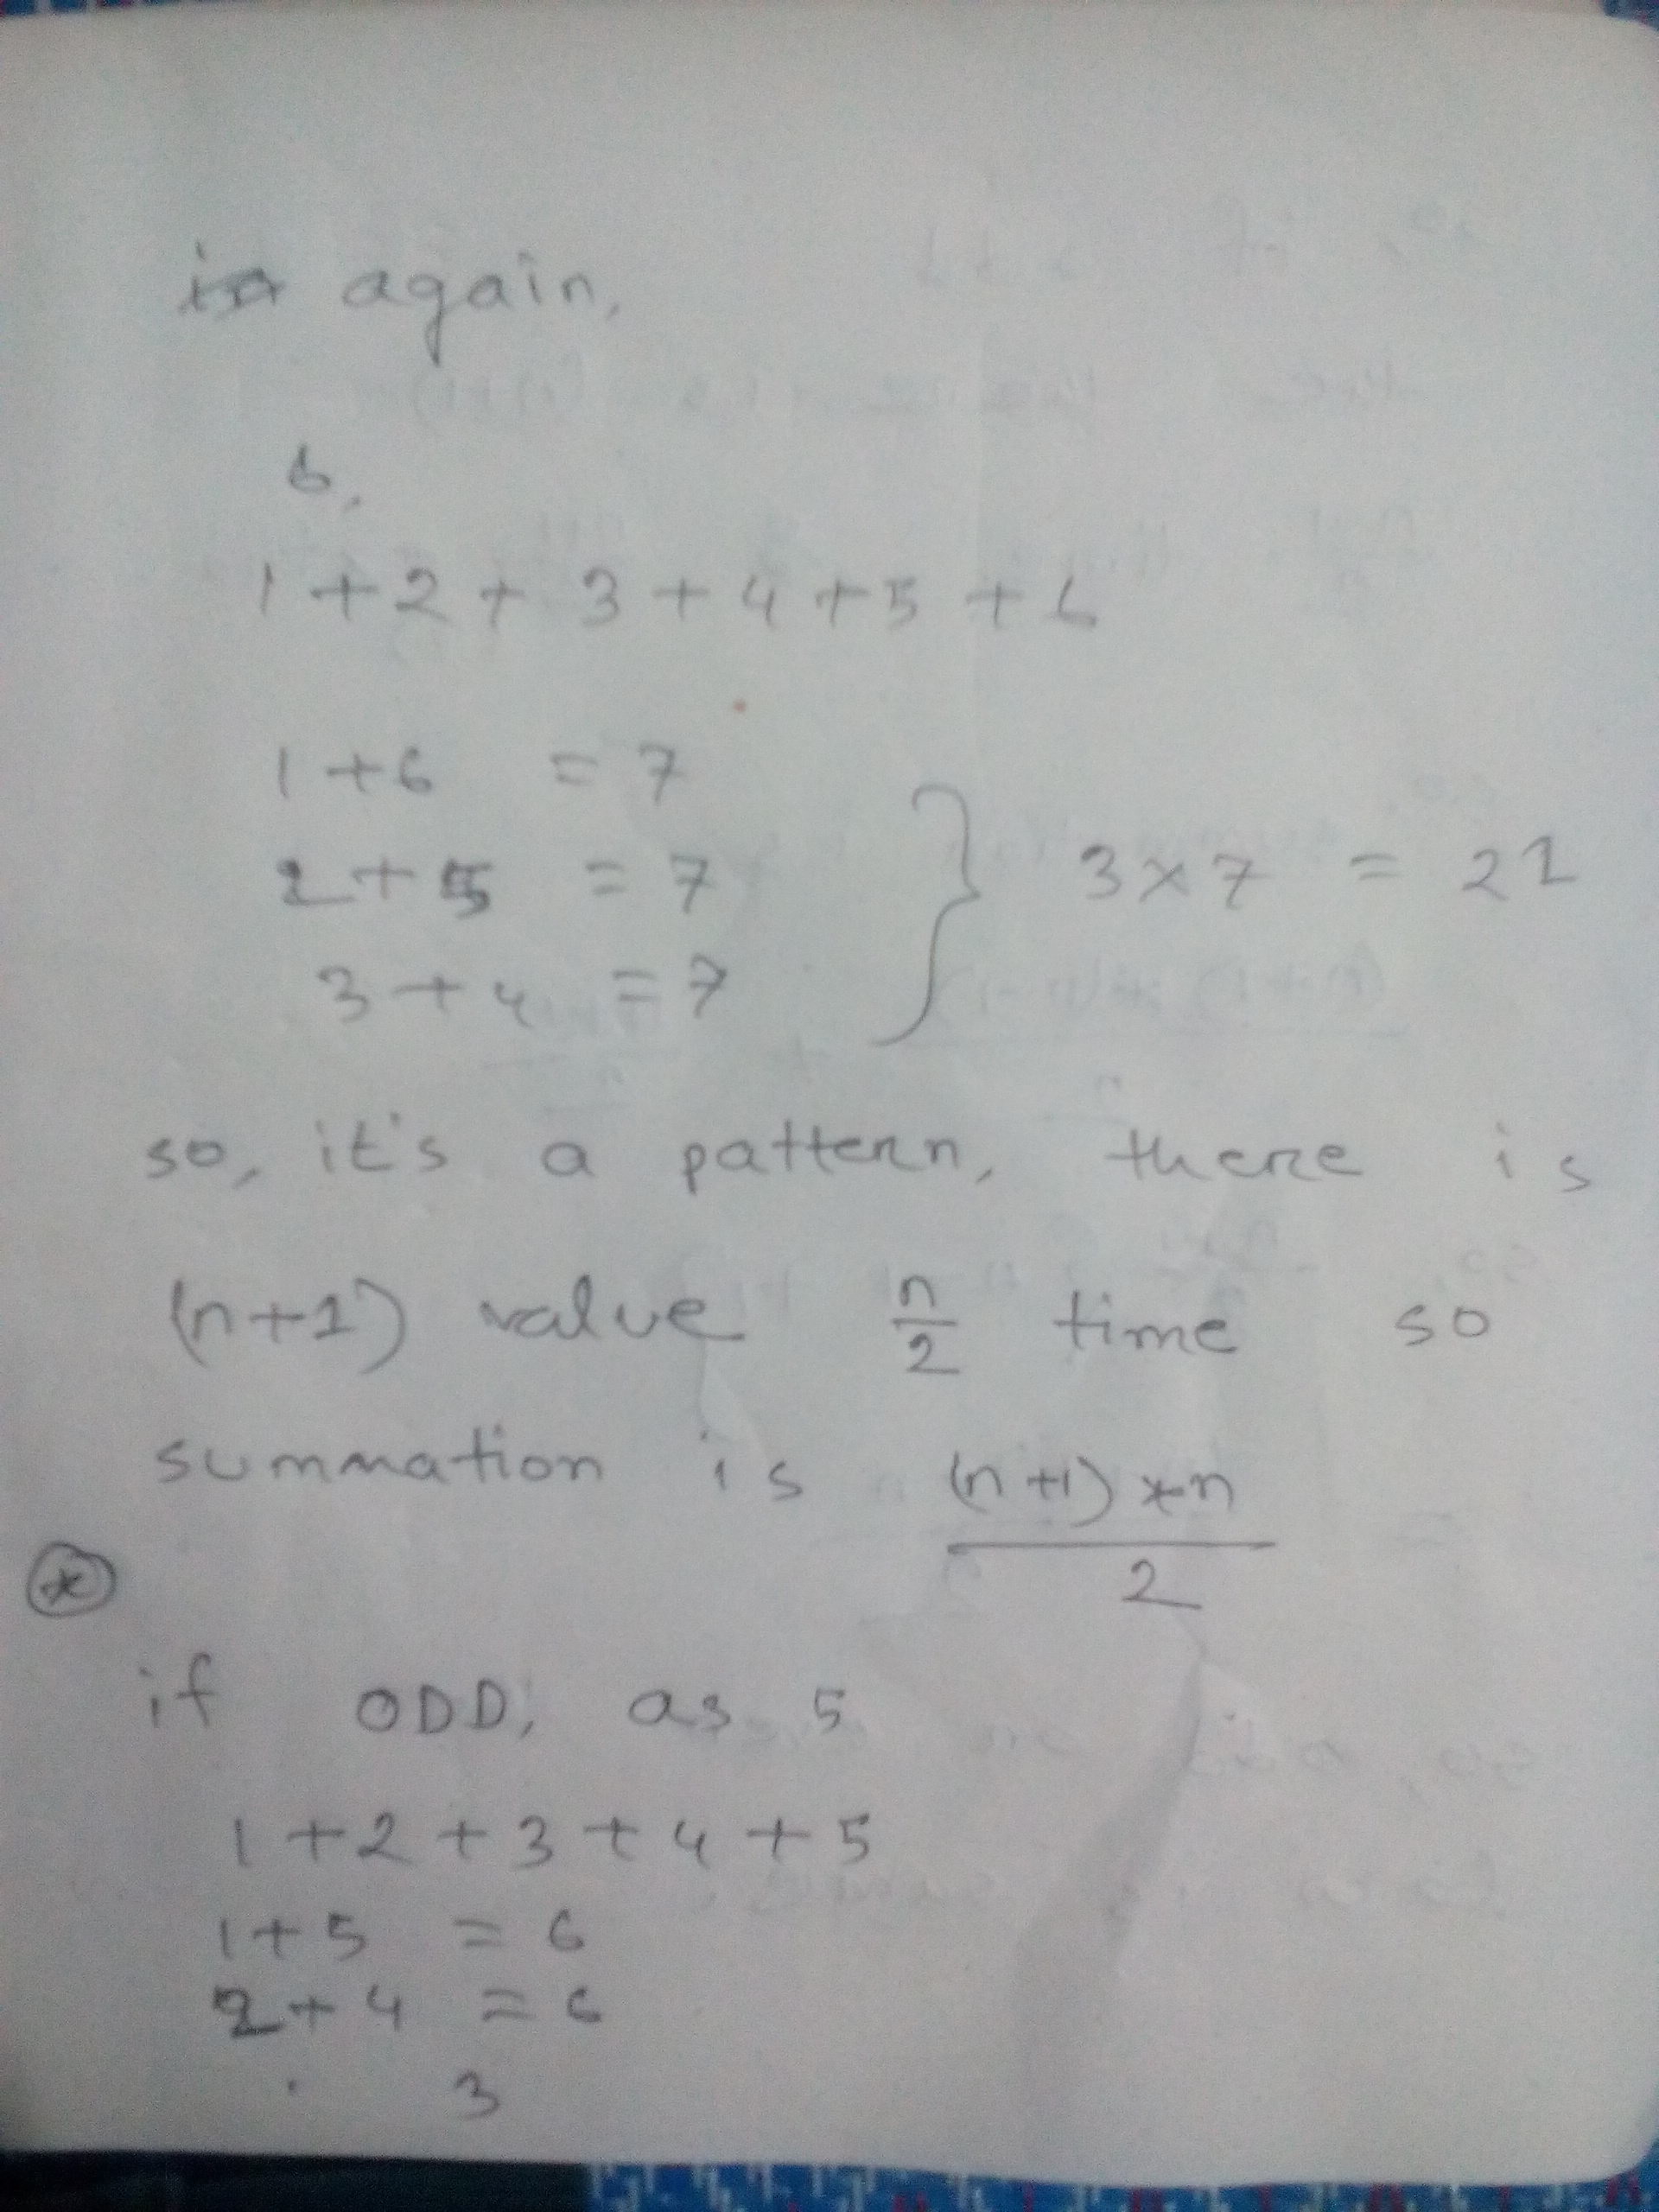 again,
6,
1 + 2 + 3 + 4 + 5 + 6
1 + 6 = 7
2 + 5 = 7 } 3 × 7 = 21
3 + 4 = 7
so, it's a pattern, there is
(n+1) value n/2 time so
summation is (n+1) * n / 2
*
if ODD, as 5
1 + 2 + 3 + 4 + 5
1 + 5 = 6
2 + 4 = 6
3